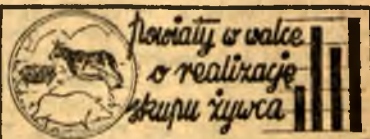 Powiaty w walce
o realizację
skupu żywca